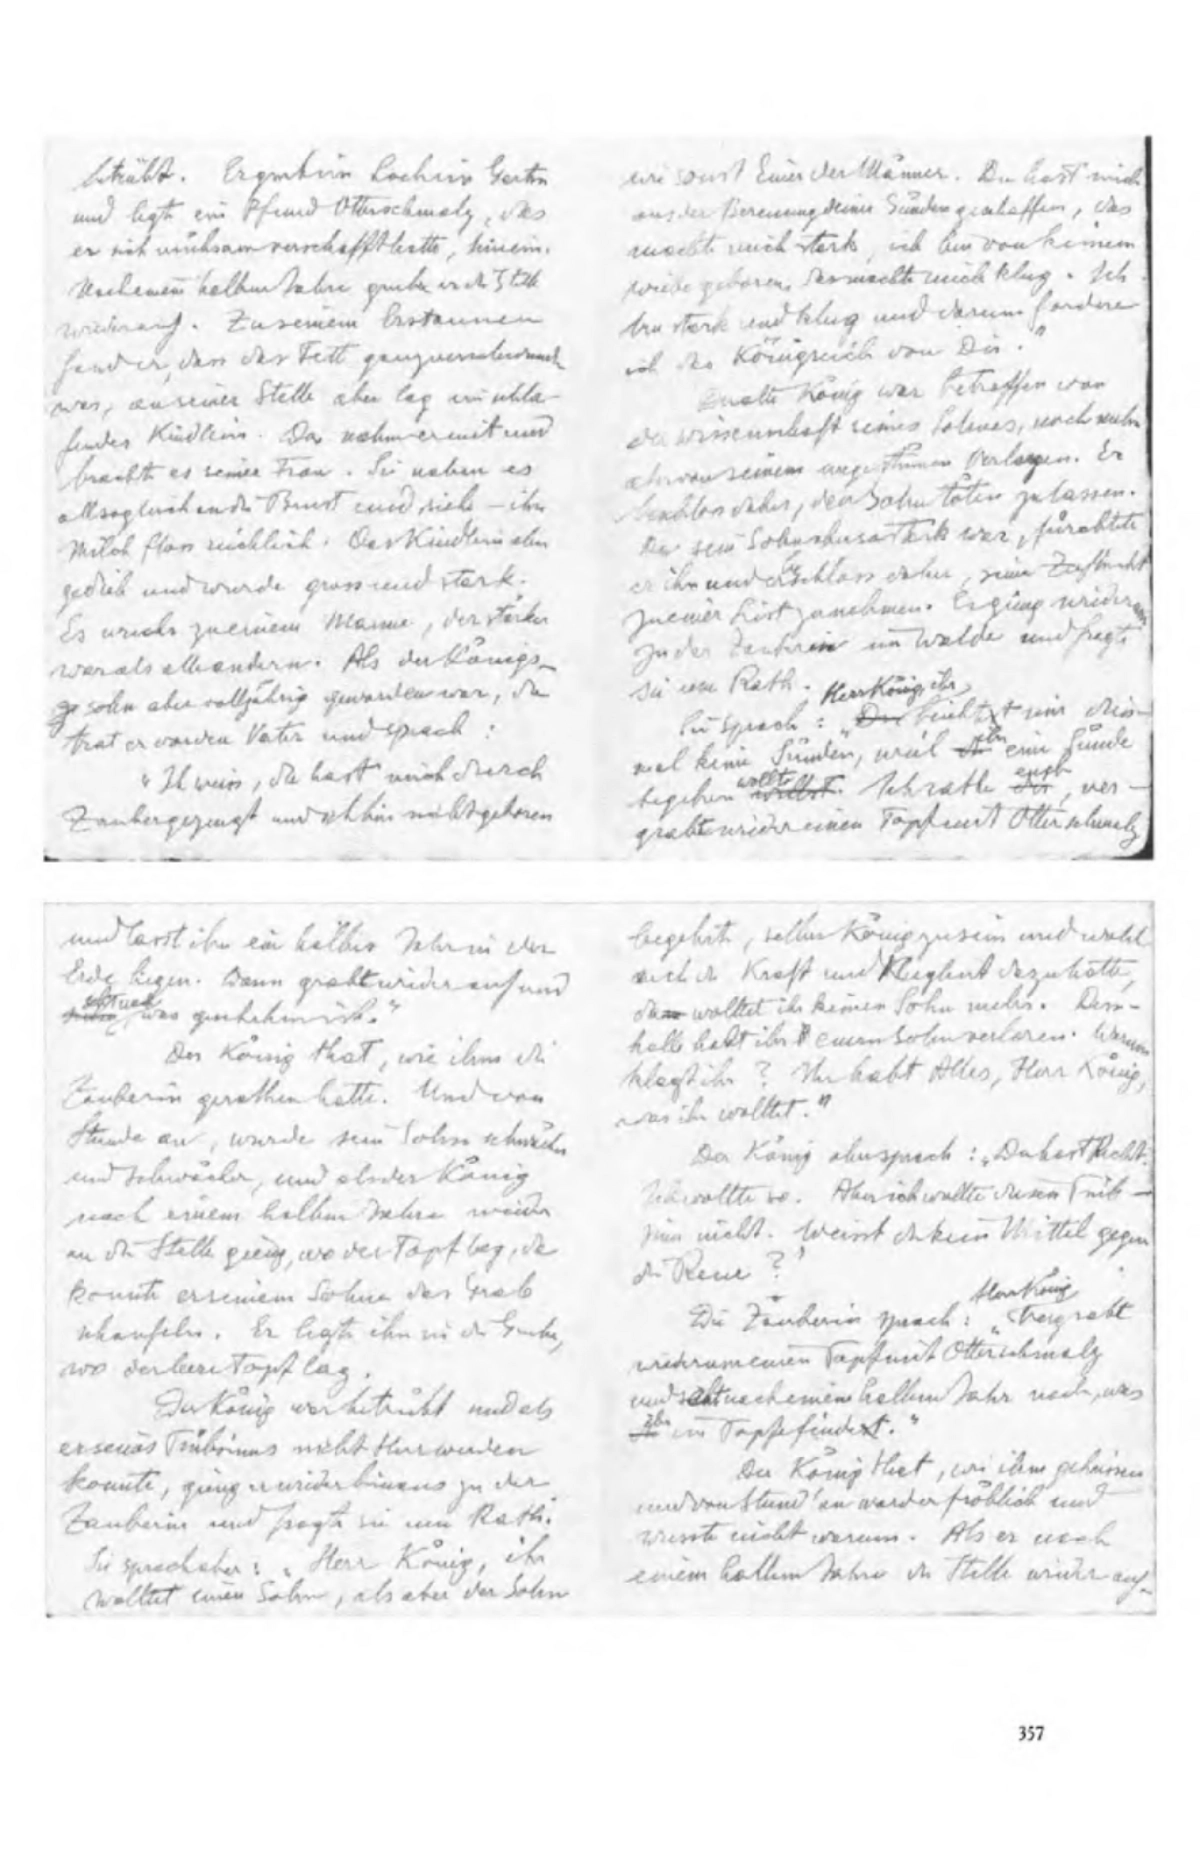 betrübt. Er grub ein Loch im Garten
und legte ein Pfund Otterschmalz, das
er sich mühsam verschafft hatte, hinein.
Nach einem halben Jahre grub er die Stelle
wieder auf. Zu seinem Erstaunen
fand er, dass das Fett ganz verschwunden
war, an seiner Stelle aber lag ein schla-
fendes Kindlein. Das nahm er mit und
brachte es seiner Frau. Sie nahm es
allsogleich an die Brust und siehe — ihre
Milch floss reichlich. Das Kindlein aber
gedieh und wurde gross und stark.
Es wuchs zu einem Manne, der stärker
war als alle andern. Als der Königs-
sohn aber volljährig geworden war, da
trat er vor den Vater und sprach:
"Ich weiss, du hast mich durch
Zauber gezeugt und ich bin nicht geboren
wie sonst Einer der Männer. Du hast mich
aus der Bereuung deiner Sünden geschaffen, das
machte mich stark, ich bin von keinem
Weibe geboren, das machte mich klug. Ich
bin stark und klug und darum fordere
ich das Königreich von Dir."
Der alte König war betroffen von
der Wissenschaft seines Sohnes, noch mehr
aber von seinem ungestümen Verlangen. Er
beschloss daher, den Sohn töten zu lassen.
Da sein Sohn aber so stark war, fürchtete
er ihn und beschloss daher, seine Zuflucht
zu einer List zu nehmen. Er gieng wiederum
zu der Zauberin im Walde und fragte
sie um Rath. Herr König, ihr
Sie sprach: "Du beichtet mir dies-
mal keine Sünden, weil du ihr eine Sünde
begehen wolltet willst. Ich rathe euch dir, ver-
grabt wieder einen Topf mit Otterschmalz
und lasst ihn ein halbes Jahr in der
Erde liegen. Dann grabt wieder auf und
seht nach, was geschehen ist."
Der König that, wie ihm die
Zauberin gerathen hatte. Und von
Stunde an, wurde sein Sohn schwächer
und schwächer, und als der König
nach einem halben Jahre wieder
an die Stelle gieng, wo der Topf lag, da
konnte er seinem Sohne das Grab
schaufeln. Er legte ihn in die Grube,
wo der leere Topf lag.
Der König war betrübt und als
er seines Trübsinns nicht Herr werden
konnte, gieng er wieder hinaus zu der
Zauberin und fragte sie um Rath.
Sie sprach aber: "Herr König, ihr
wolltet einen Sohn, als aber der Sohn
begehrte, selber König zu sein und wohl
auch die Kraft und Klugheit dazu hatte,
da wolltet ihr keinen Sohn mehr. Dess-
halb habt ihr euern Sohn verloren. Warum
klagt ihr? Ihr habt Alles, Herr König,
was ihr wolltet."
Der König aber sprach: "Du hast Recht.
Ich wollte so. Aber ich wollte diesen Trüb-
sinn nicht. Weisst du kein Mittel gegen
die Reue?"
Herr König
Die Zauberin sprach: "Vergrabt
wiederum einen Topf mit Otterschmalz
und seht nach einem halben Jahr nach, was
ihr im Topfe findet."
Der König that, wie ihm geheissen
und von Stund' an ward er fröhlich und
wusste nicht warum. Als er nach
einem halben Jahre die Stelle wieder auf-
357